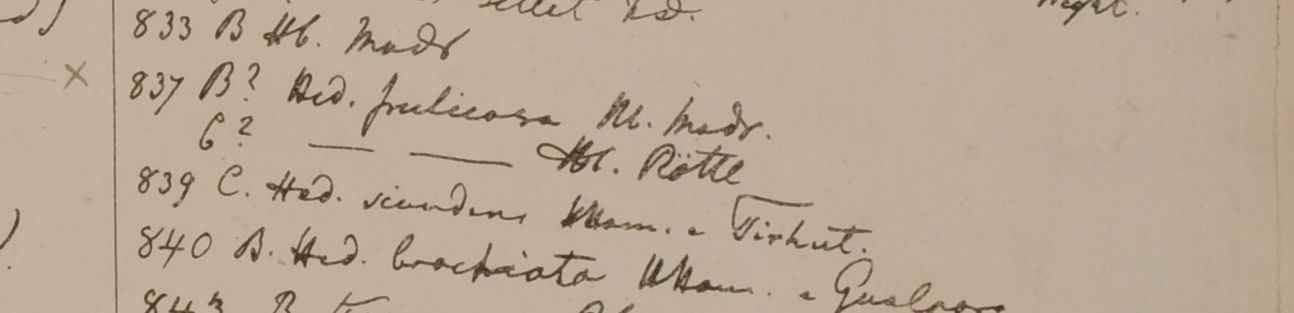 833 B Hb. Madr
837 B? Hed. fruticosa Hb. Madr.
C? — — Hb. Röttl
839 C. Hed. scandens Wham. e Tirhut.
840 B. Hed. brachiata Wham. e Gualpara